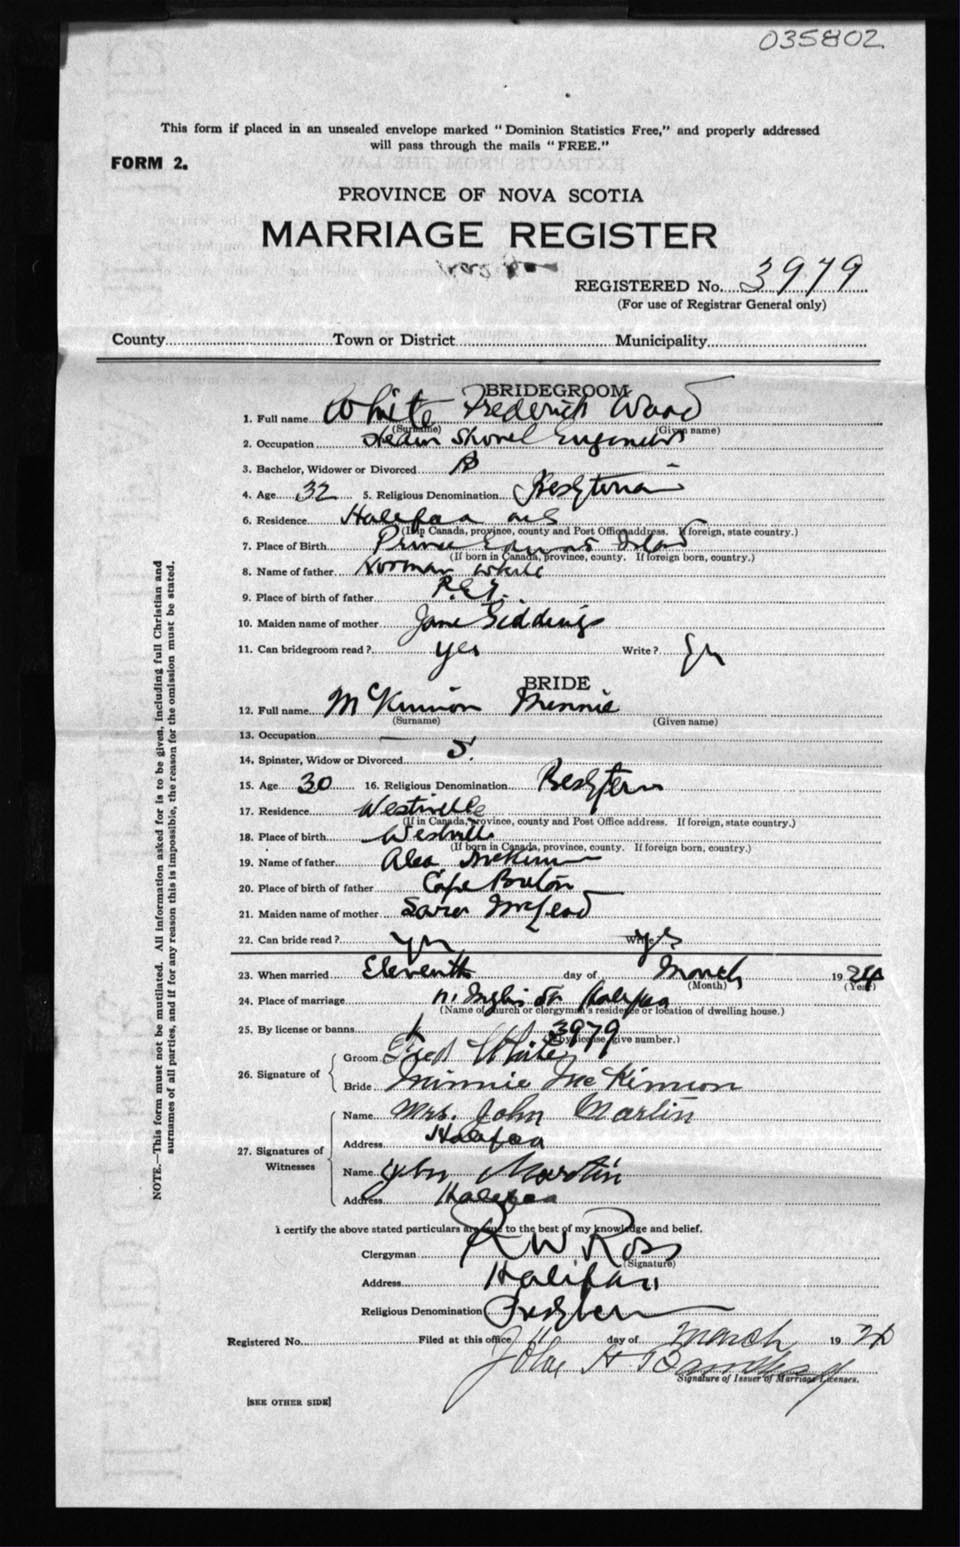 035802
This form if placed in an unsealed envelope marked "Dominion Statistics Free," and properly addressed
will pass through the mails "FREE."
FORM 2.
PROVINCE OF NOVA SCOTIA
MARRIAGE REGISTER
REGISTERED No. 3979
(For use of Registrar General only)
County Town or District Municipality
BRIDEGROOM
1. Full name White Frederick Ward
(Surname) (Given name)
2. Occupation Steam Shovel
3. Bachelor, Widower or Divorced B
4. Age 32 5. Religious Denomination
6. Residence Halifax
(If in Canada, province, county and Post Office address. If foreign, state country.)
7. Place of Birth Prince Edward Island
(If born in Canada, province, county. If foreign born, country.)
8. Name of father Norman White
9. Place of birth of father P.E.I.
10. Maiden name of mother Jane Giddings
11. Can bridegroom read? yes Write?
BRIDE
12. Full name McKinnon Minnie
(Surname) (Given name)
13. Occupation —
14. Spinster, Widow or Divorced S.
15. Age 30 16. Religious Denomination
17. Residence Westville
(If in Canada, province, county and Post Office address. If foreign, state country.)
18. Place of birth Westville
(If born in Canada, province, county. If foreign born, country.)
19. Name of father Alex McKinnon
20. Place of birth of father Cape Breton
21. Maiden name of mother McLeod
22. Can bride read? yes Write? yes
23. When married Eleventh day of March 1924
(Month) (Year)
24. Place of marriage Inglis St Halifax
(Name of church or clergyman's residence or location of dwelling house.)
25. By license or banns 3979
(If by license, give number.)
26. Signature of
Groom Fred White
Bride Minnie McKinnon
27. Signatures of Witnesses
Name Mrs. John Martin
Address Halifax
Name John Martin
Address Halifax
I certify the above stated particulars are true to the best of my knowledge and belief.
Clergyman R W Ross
(Signature)
Address Halifax
Religious Denomination
Registered No. Filed at this office 11 day of March 1924
John H
Signature of Issuer of Marriage Licenses.
[SEE OTHER SIDE]
NOTE.—This form must not be mutilated. All information asked for is to be given, including full Christian and
surnames of all parties, and if for any reason this is impossible, the reason for the omission must be stated.